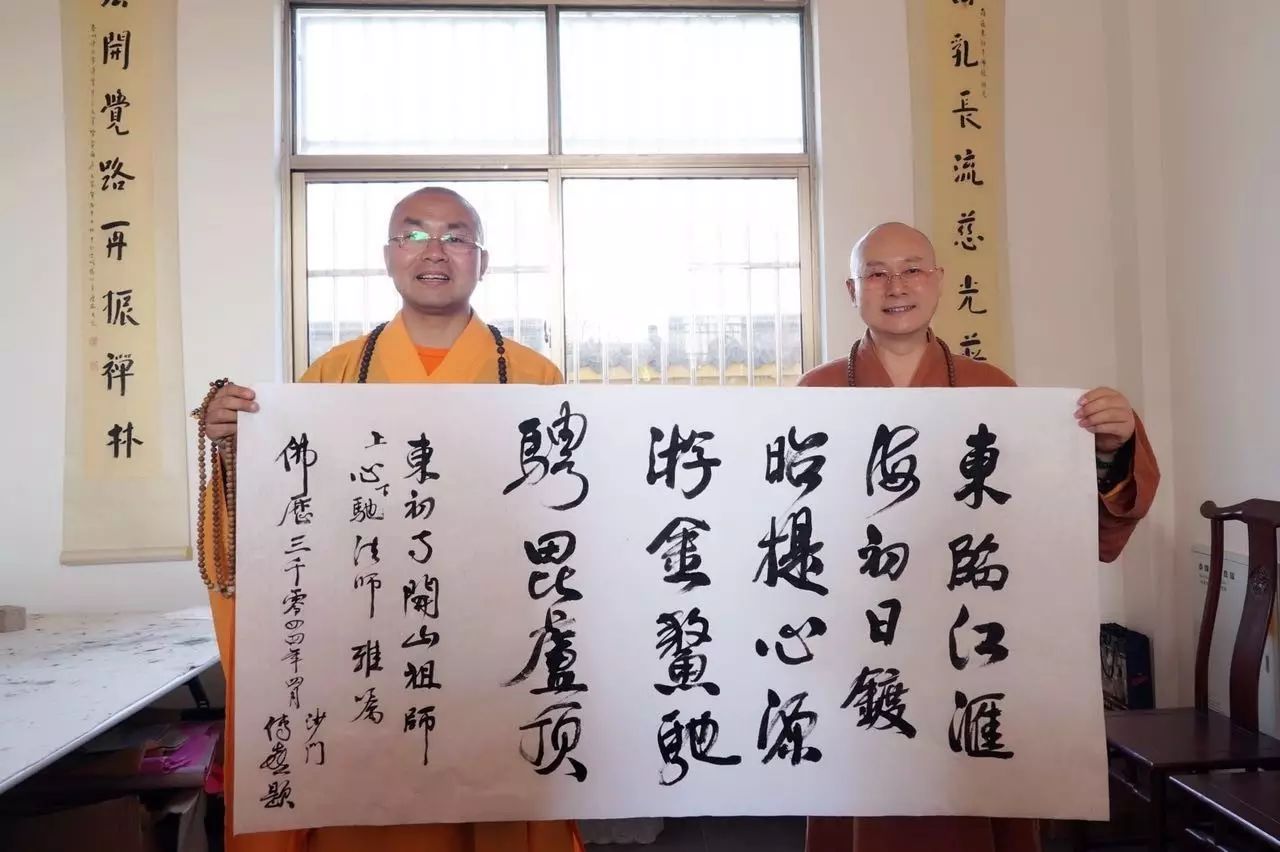 乳長流慈光
東臨江滙
海初日鍍
昭提心源
游金鰲馳
騁毘盧頂
東初寺開山祖師
上心下馳法師 雅屬
佛歷三千零四四年四月
沙门
傳喜題
開覺路再振禪林